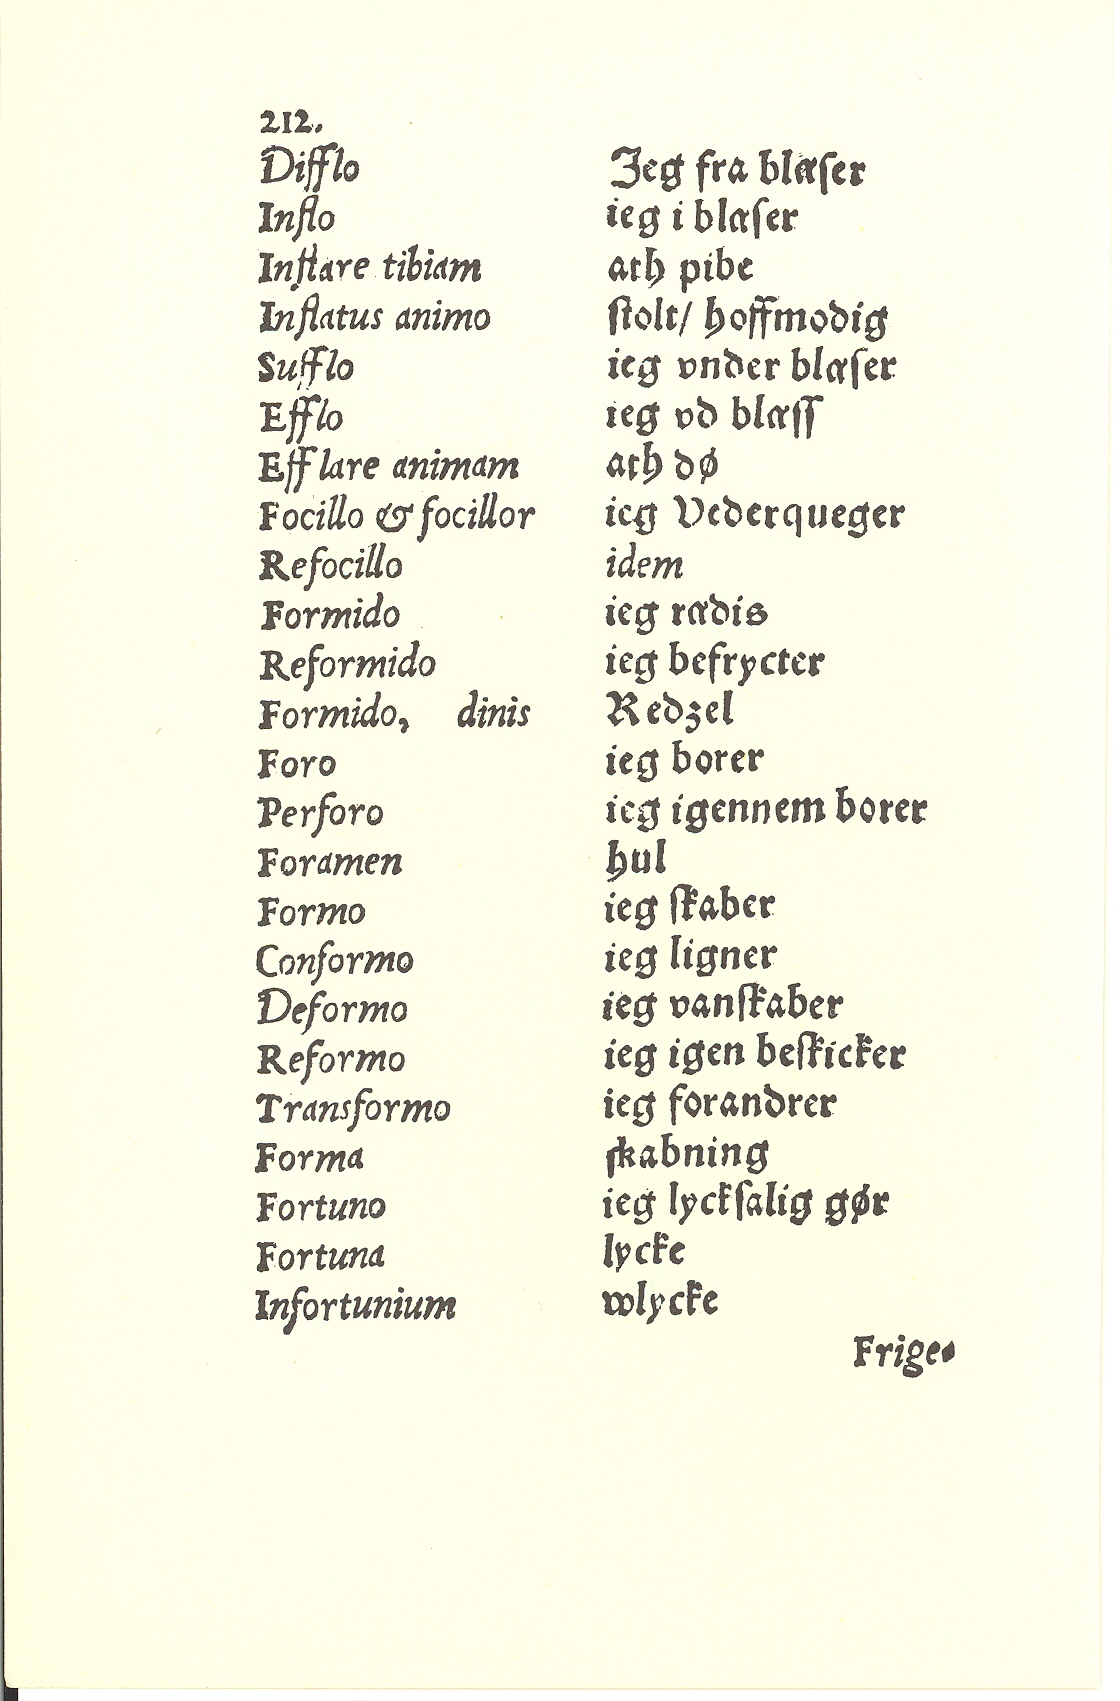 212.
Difflo Jeg fra blæſer
Inflo ieg i blæſer
Inflare tibiam ath pibe
Inflatus animo ſtolt/ hoffmodig
Sufflo ieg vnder blæſer
Efflo ieg vd blæſſ
Efflare animam ath dø
Focillo & focillor ieg Vederqueger
Refocillo idem
Formido ieg rædis
Reformido ieg befrycter
Formido, dinis Redzel
Foro ieg borer
Perforo ieg igennem borer
Foramen hul
Formo ieg ſkaber
Conformo ieg ligner
Deformo ieg vanſkaber
Reformo ieg igen beſkicker
Transformo ieg forandrer
Forma ſkabning
Fortuno ieg lyckſalig gør
Fortuna lycke
Infortunium wlycke
Frige.